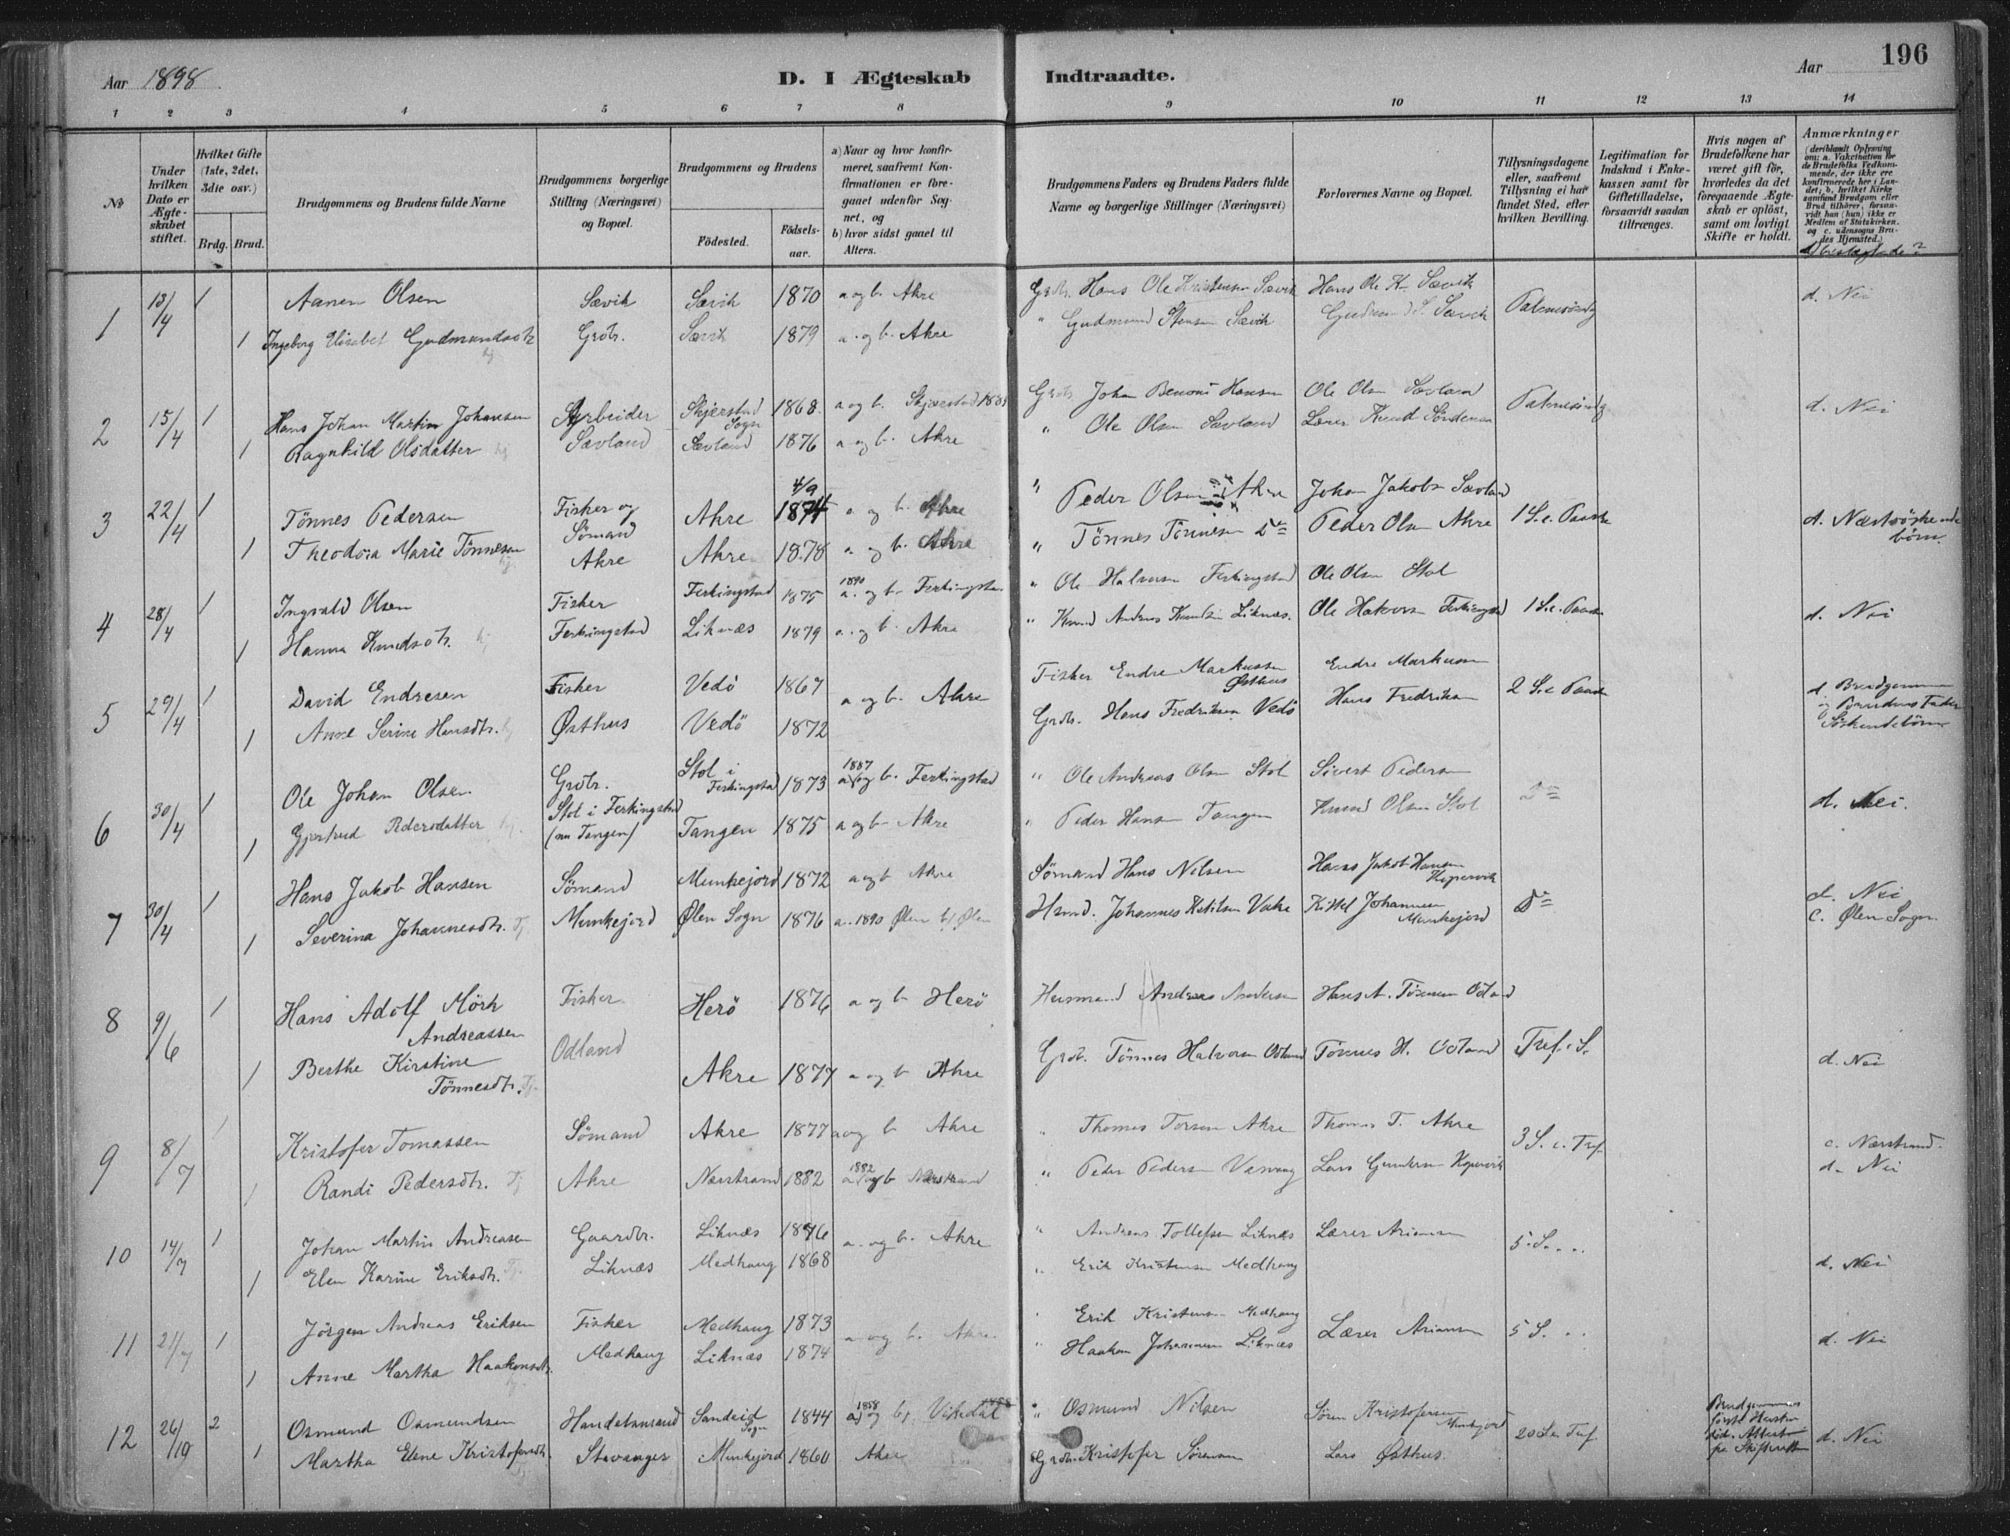 196
Aar 1898
D. I Ægteskab Indtraadte.
Aar
1 2 3 4 5 6 7 8 9 10 11 12 13 14
No
Under hvilken Dato er Ægteskabet stiftet.
Hvilket Gifte (1ste, 2det, 3die osv.)
Brdg. Brud.
Brudgommens og Brudens fulde Navne
Brudgommens borgerlige Stilling (Næringsvei) og Bopæl.
Brudgommens og Brudens
Fødested.
Fødselsaar.
a) Naar og hvor konfirmeret, saafremt Konfirmationen er foregaaet udenfor Sognet, og b) hvor sidst gaaet til Alters.
Brudgommens Faders og Brudens Faders fulde Navne og borgerlige Stillinger (Næringsvei)
Forlovernes Navne og Bopæl.
Tillysningsdagene eller, saafremt Tillysning ei har fundet Sted, efter hvilken Bevilling.
Legitimation for Indskud i Enkekassen samt for Giftetilladelse, forsaavidt saadan tiltrænges.
Hvis nogen af Brudefolkene har været gift før, hvorledes da det foregaaende Ægteskab er opløst, samt om lovligt Skifte er holdt.
Anmærkninger (deriblandt Oplysning om: a. Vakcination for de Brudefolks Vedkommende, der ikke ere konfirmerede her i Landet; b. hvilket Kirkesamfund Brudgom eller Brud tilhører, forsaavidt han (hun) ikke er Medlem af Statskirken, og c. udensogns Brudes Hjemsted.)
d) beslægtede?
1 13/4 1 Aanen Olsen Sævik Sævik 1870 a og b. Akre Grdb. Hans Ole Kristensen Sævik Hans Ole K. Sævik Palmesöndg d. Nei
1 Ingeborg Elisabet Gudmundsdtr Grdbr. Sævik 1879 a. og b. Akre " Gudmund Stensen Sævik Gudmund S. Sævik
2 15/4 1 Hans Johan Martin Johansen Arbeider Skjerstad Sogn 1868. a og b. Skjerstad Grdb Johan Benoni Hansen Ole Olsen Sævland Palmesöndg d. Nei
1 Ragnhild Olsdatter Sævland Sævland 1876 a og b. Akre " Ole Olsen Sævland Lærer Knud Söndenaa
3 22/4 1 Tönnes Pedersen Fisker og Sömand Akre 4/9 1874 a og b. Akre " Peder Olsen Akre Johan Jakobs. Sævland 1 S. e. Paaske d. Næstsöskendebörn.
1 Theodora Marie Tönnesen Akre Akre 1878 a. og b. Akre " Tönnes Tönnesen Do Peder Olsen Akre
4 28/4 1 Ingvald Olsen Fisker Ferkingstad 1875 1890 a. og b. Ferkingstad " Ole Halvorsen Ferkingstad Ole Olsen Stol 1 S. e. Paaske d. Nei
1 Hanna Knudsdtr. Ferkingstad Liknæs 1879 a. og b. Akre " Knud Andreas Knudsen Liknæs. Ole Halvorsen Ferkingstad
5 29/4 1 David Endresen Fisker Vedö 1867 a og b. Akre Fisker Endre Markussen Østhus Endre Markussen 2 S. e. Paaske d. Brudgommen og Brudens Fader Söskendebörn
1 Anne Serine Hansdtr. Østhus Vedö 1872 Grdb. Hans Fredriksen Vedö Hans Fredriksen
6 30/4 1 Ole Johan Olsen Grdbr. Stol i Ferkingstad 1873 1887 a og b. Ferkingstad " Ole Andreas Olsen Stol Sivert Pedersen Do d. Nei.
1 Gjertrud Pedersdatter Stol i Ferkingstad (nu Tangen) Tangen 1875 a og b Akre " Peder Hansen Tangen Knud Olsen Stol
7 30/4 1 Hans Jakob Hansen Sömand Munkejord 1872 a og b Akre Sömand Hans Nilsen Hans Jakob Hansen Kopervik Do d. Nei
1 Severina Johannesdtr. Munkejord Ølen Sogn 1876 a. 1890 Ølen b) Ølen Johannes Ketilsen Vake Kittel Johannesen Munkejord c. Ølen Sogn.
8 9/6 1 Hans Adolf Mörk Andreassen Fisker Herö 1876 a og b. Herö Husmand Andreas Andersen Hans A. Tönnesen Odland Tref. S. d. Nei
1 Berthe Kirstine Tönnesdtr. Odland Akre 1877 a og b Akre Grdb. Tönnes Halvorsen Odland Tönnes H. Odland
9 8/7 1 Kristofer Tomassen Sömand Akre 1877 a og b Akre " Thomas Torsen Akre Thomas T. Akre 3 S. e. Tref. c. Nærstrand.
1 Randi Pedersdtr. Akre Nærstrand 1882 a og b Nærstrand " Peder Pedersen Lars Gundersen Kopervik d. Nei
10 14/7 1 Johan Martin Andreassen Gaardbr. Liknæs 1876 a. og b. Akre " Andreas Tollefsen Liknæs Lærer Ariansen 5. S. . . . d. Nei
1 Elen Karine Eriksdtr. Liknæs Medhaug 1868 " Erik Kristensen Medhaug
11 21/7 1 Jörgen Andreas Eriksen Fisker Medhaug 1873 a og b. Akre " Erik Kristensen Medhaug Lærer Ariansen 5 S. . . d. Nei
1 Anne Martha Haakonsdtr. Medhaug Liknæs 1874 " Haakon Johannesen Liknæs
12 26/10 2 Osmund Osmundsen Handelsmand Sandeid Sogn 1844 1858 a) og b) Vikedal " Osmund Nilsen Sören Kristofersen Munkejord 20 S. e. Tref. Brudgommens förste Hustru död. Attest fra Skifteretten d. Nei
1 Martha Elene Kristofersdtr. Stavanger Munkejord 1860 Akre Grdb. Kristofer Sörensen Lars Østhus.